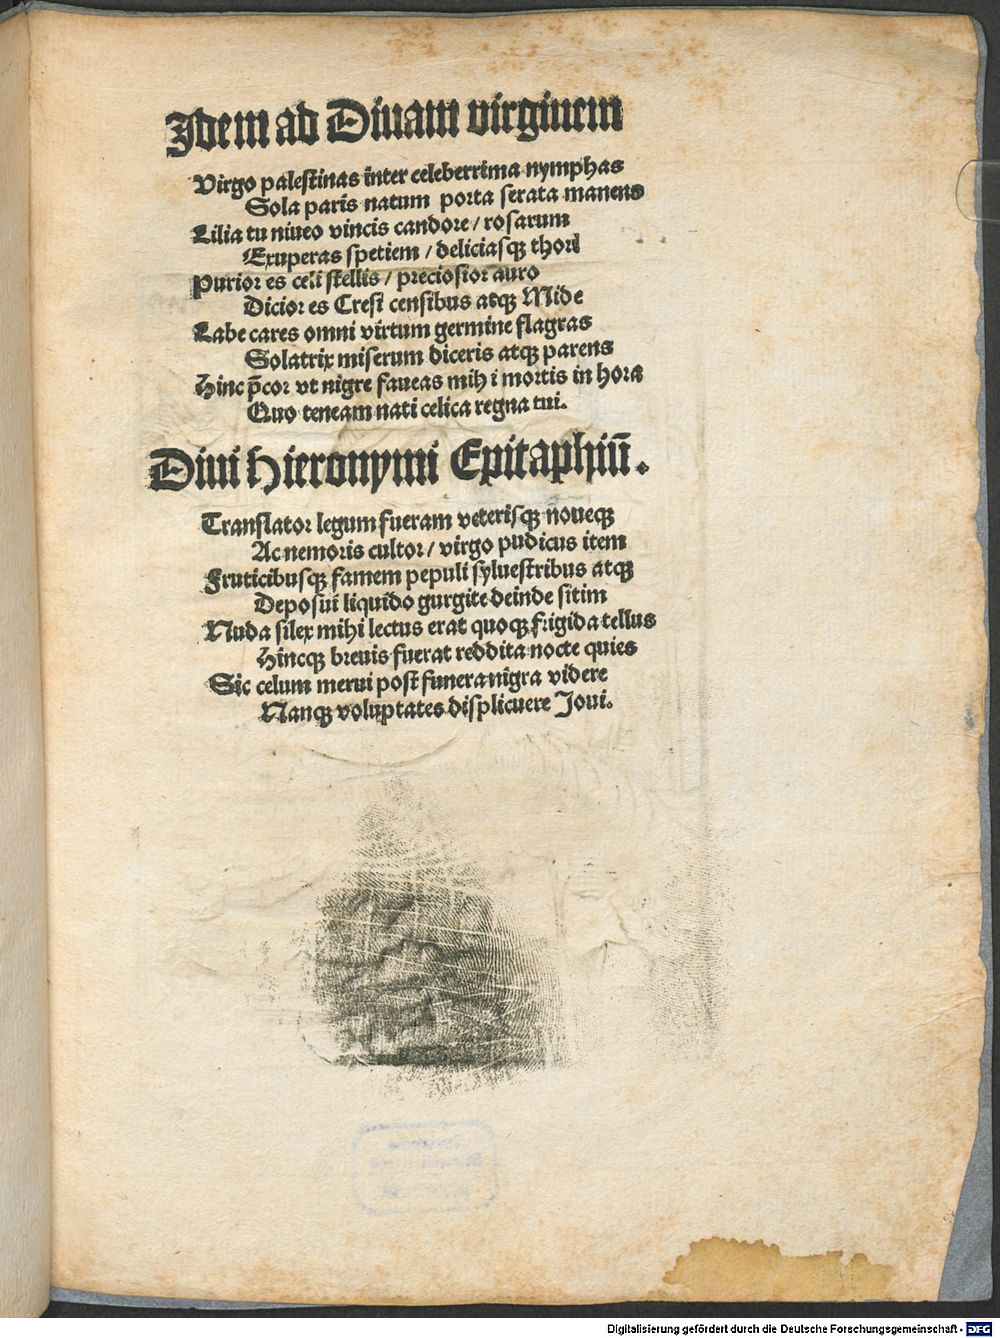 Idem ad Diuam virginem
Virgo palestinas inter celeberrima nymphas
Sola paris natum porta serata manens
Lilia tu niueo vincis candore / rosarum
Exuperas spetiem / deliciasqꝫ thori
Purior es celi stellis / preciosior auro
Dicior es Cresi censibus atqꝫ Mide
Labe cares omni virtum germine flagras
Solatrix miserum diceris atqꝫ parens
Hinc p̄cor vt nigre faueas mihi mortis in hora
Quo teneam nati celica regna tui.
Diui Hieronymi Epitaphiū.
Translator legum fueram veterisqꝫ noueqꝫ
Ac nemoris cultor / virgo pudicus item
Fruticibusqꝫ famem pepuli syluestribus atqꝫ
Deposui liquido gurgite deinde sitim
Nuda silex mihi lectus erat quoqꝫ frigida tellus
Hincqꝫ breuis fuerat reddita nocte quies
Sic celum merui post funera nigra videre
Nanqꝫ voluptates displicuere Ioui.
Digitalisierung gefördert durch die Deutsche Forschungsgemeinschaft - DFG